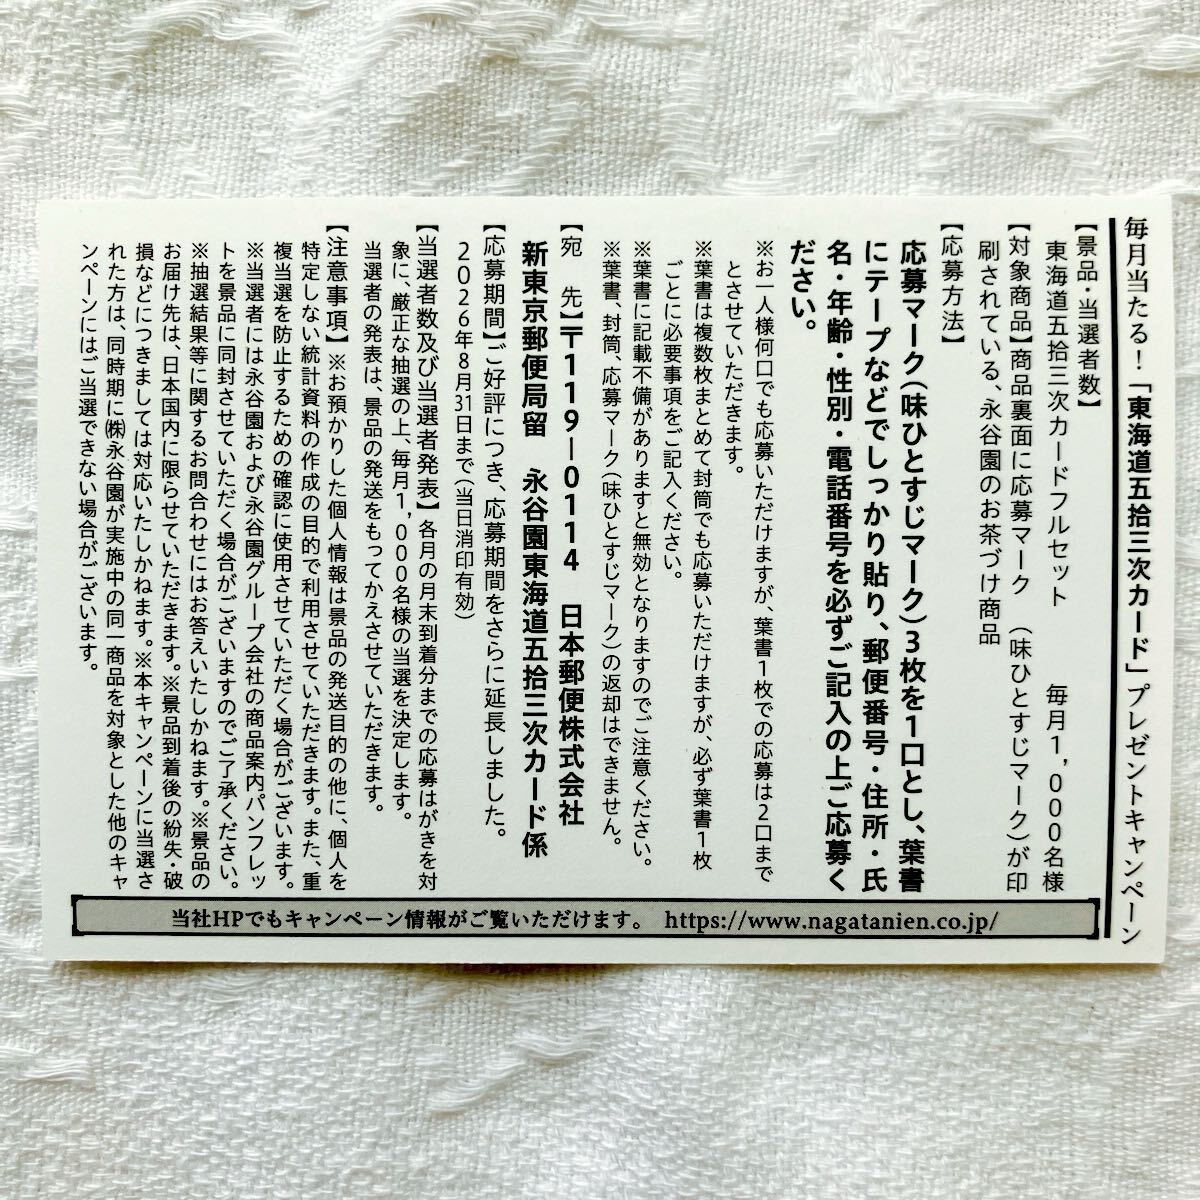 毎月当たる！「東海道五拾三次カード」プレゼントキャンペーン
【景品・当選者数】
東海道五拾三次カードフルセット　毎月1,000名様
【対象商品】商品裏面に応募マーク（味ひとすじマーク）が印
刷されている、永谷園のお茶づけ商品
【応募方法】
応募マーク（味ひとすじマーク）3枚を1口とし、葉書
にテープなどでしっかり貼り、郵便番号・住所・氏
名・年齢・性別・電話番号を必ずご記入の上ご応募く
ださい。
※お一人様何口でも応募いただけますが、葉書1枚での応募は2口まで
とさせていただきます。
※葉書は複数枚まとめて封筒でも応募いただけますが、必ず葉書1枚
ごとに必要事項をご記入ください。
※葉書に記載不備がありますと無効となりますのでご注意ください。
※葉書、封筒、応募マーク（味ひとすじマーク）の返却はできません。
【宛　先】〒119-0114　日本郵便株式会社
新東京郵便局留　永谷園東海道五拾三次カード係
【応募期間】ご好評につき、応募期間をさらに延長しました。
2026年8月31日まで（当日消印有効）
【当選者数及び当選者発表】各月の月末到着分までの応募はがきを対
象に、厳正な抽選の上、毎月1,000名様の当選を決定します。
当選者の発表は、景品の発送をもってかえさせていただきます。
【注意事項】※お預かりした個人情報は景品の発送目的の他に、個人を
特定しない統計資料の作成の目的で利用させていただきます。また、重
複当選を防止するための確認に使用させていただく場合がございます。
※当選者には永谷園および永谷園グループ会社の商品案内パンフレッ
トを景品に同封させていただく場合がございますのでご了承ください。
※抽選結果等に関するお問合わせにはお答えいたしかねます。※景品の
お届け先は、日本国内に限らせていただきます。※景品到着後の紛失・破
損などにつきましては対応いたしかねます。※本キャンペーンに当選さ
れた方は、同時期に㈱永谷園が実施中の同一商品を対象とした他のキャ
ンペーンにはご当選できない場合がございます。
当社HPでもキャンペーン情報がご覧いただけます。 https://www.nagatanien.co.jp/